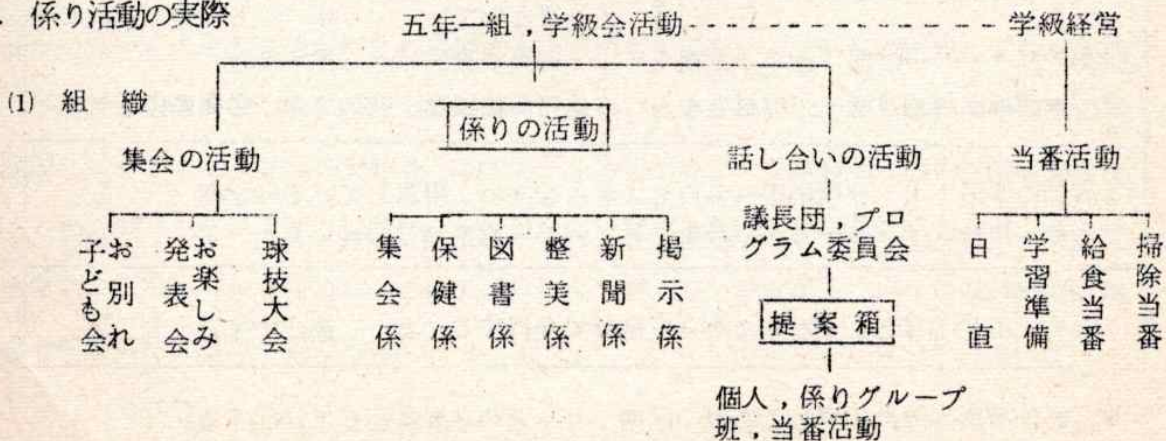 . 係り活動の実際
五年一組，学級会活動 - - - - - - - - - - - 学級経営
(1) 組 織
集会の活動
係りの活動
話し合いの活動
当番活動
お別れ
子ども会
お楽しみ
発表会
球技大会
集会係
保健係
図書係
整美係
新聞係
掲示係
議長団，プロ
グラム委員会
提案箱
個人，係りグループ
班，当番活動
日直
学習準備
給食当番
掃除当番